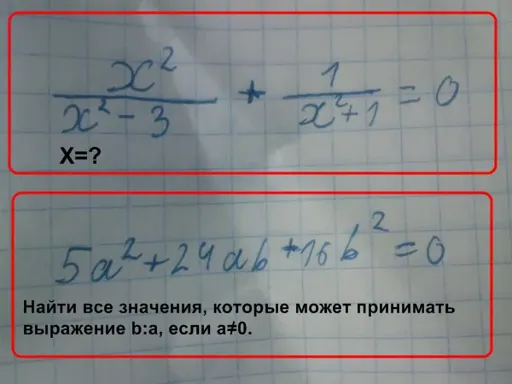 x²/(x² - 3) + 1/(x² + 1) = 0
X=?
5a² + 24ab + 16b² = 0
Найти все значения, которые может принимать
выражение b:a, если a≠0.